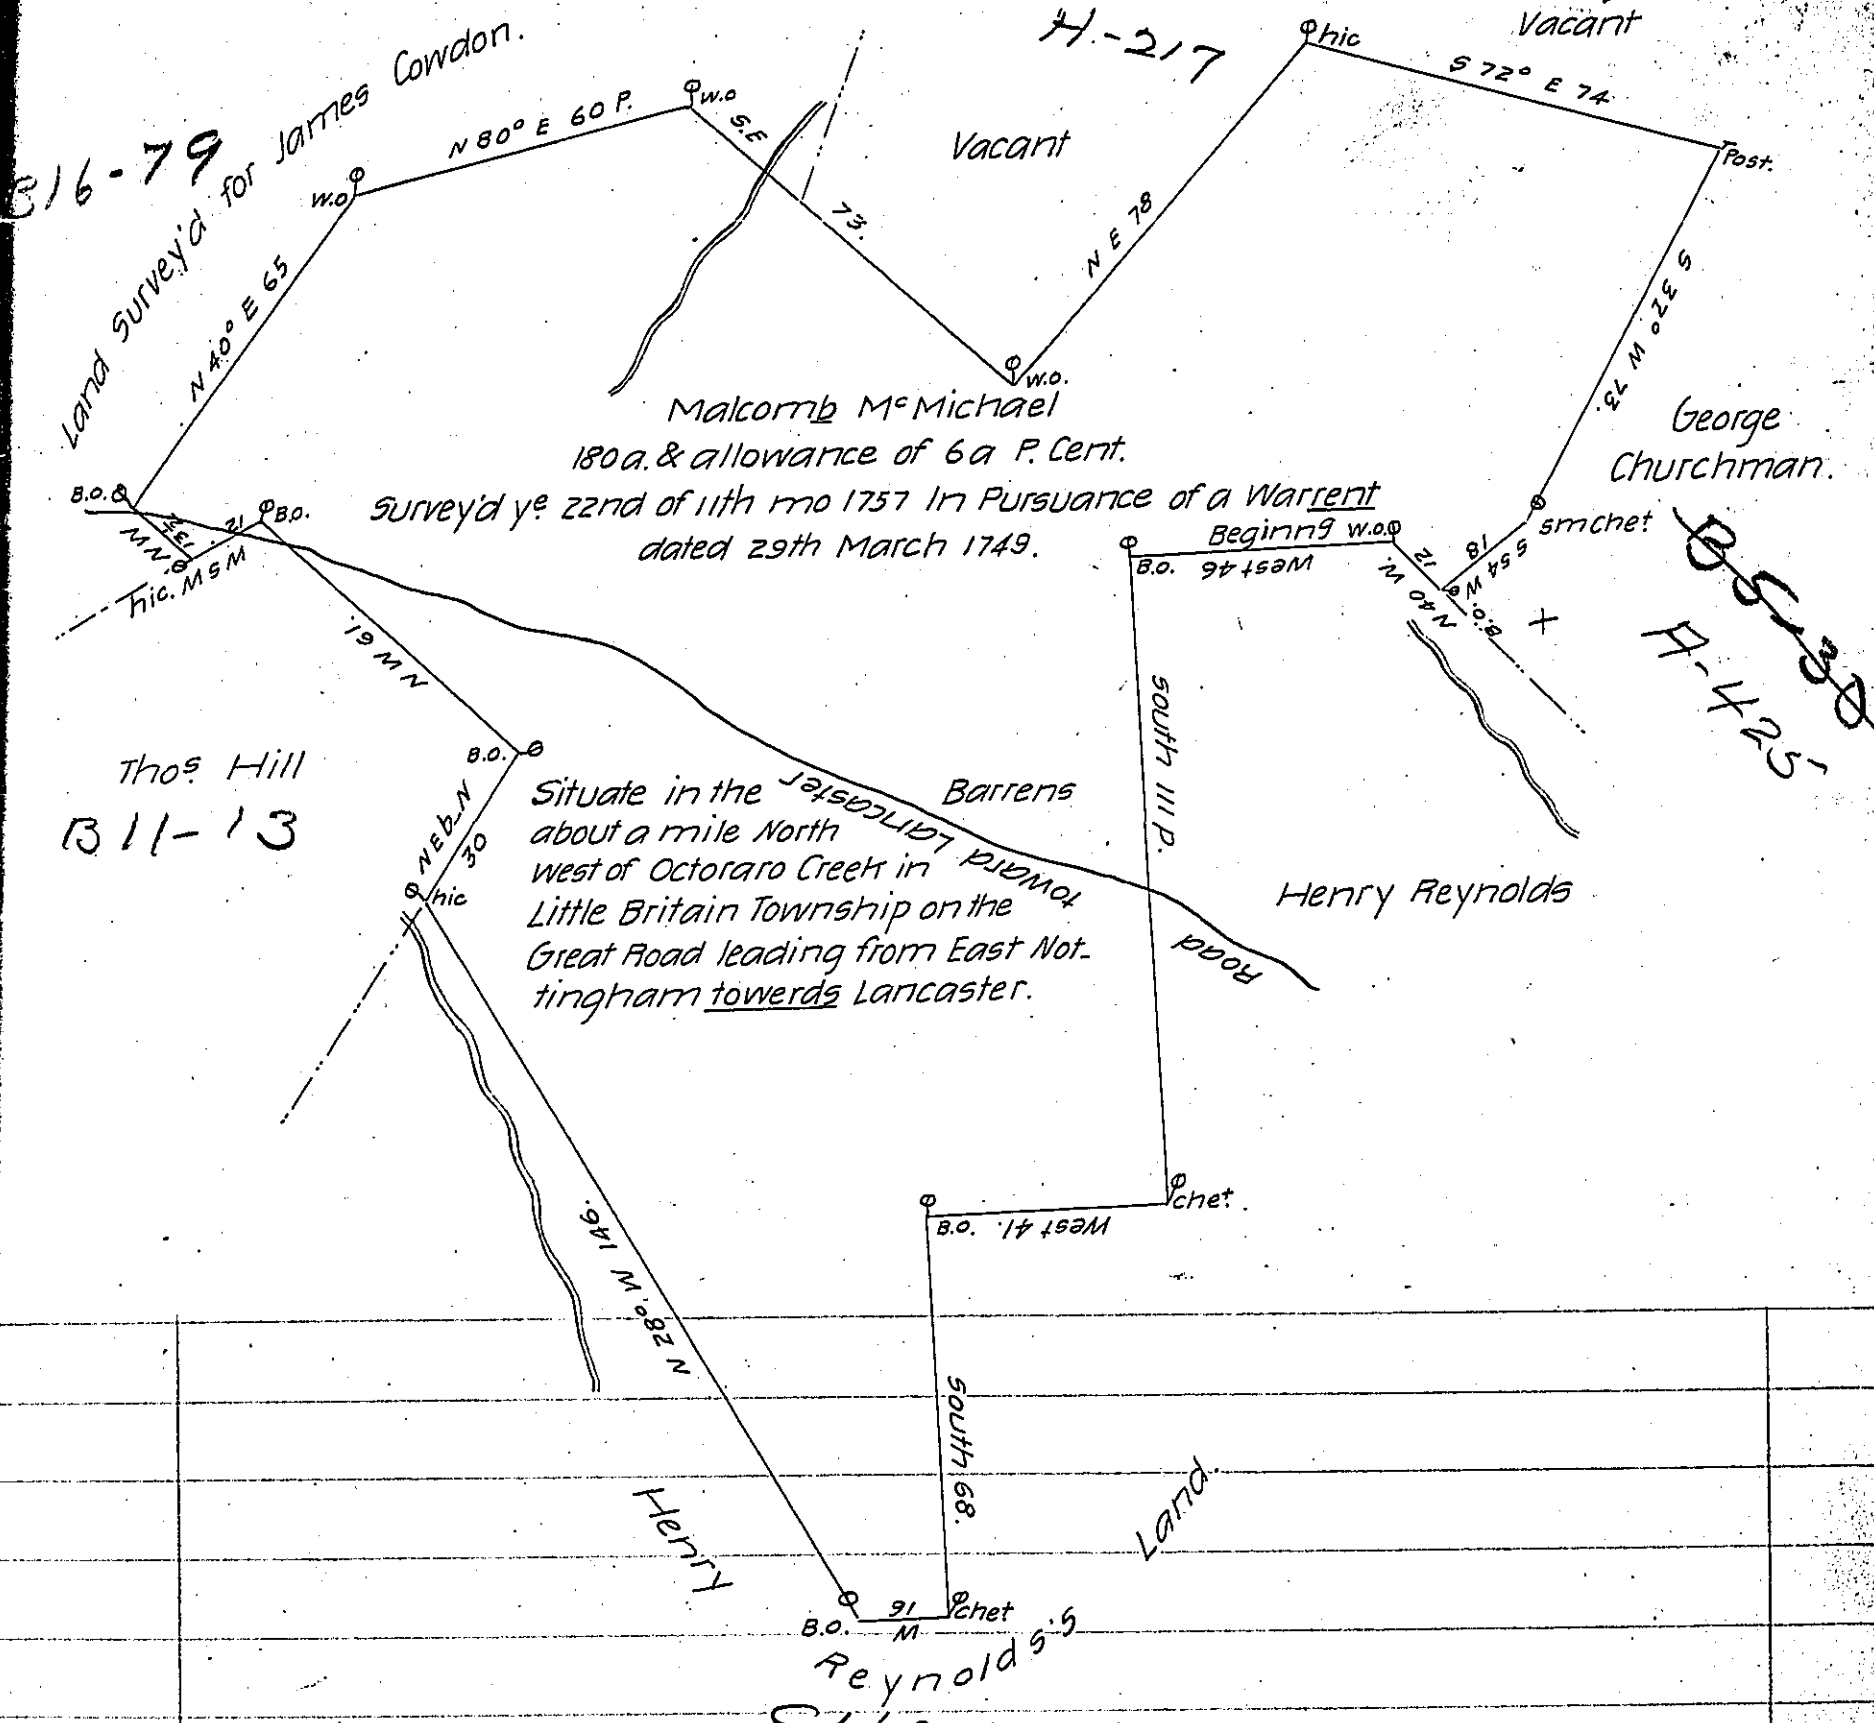 Land Survey'd for James Cowdon.
B16-79
H.-217
Vacant
Vacant
hic
S 72° E 74
Post.
N 80° E 60 P.
W.O
W.O
S.E
73.
N E 78
N 40° E 65
S 32° W 73.
W.O.
Malcomb McMichael
180 a. & allowance of 6 a P. Cent.
Survey'd ye 22nd of 11th mo 1757 In Pursuance of a Warrent
dated 29th March 1749.
George
Churchman.
B.O.
N W
21
B.O.
hic. W S W
smchet
Beginng W.O.
B.O. West 46
12
N 40 W.
18
S 54 W
B.O.
A-425
N W 61.
South 111 P.
Thos. Hill
B11-13
B.O.
NEb.N
30
hic
Situate in the Barrens
about a mile North
west of Octoraro Creek in
Little Britain Township on the
Great Road leading from East Not-
tingham towerds Lancaster.
Road toward Lancaster
Henry Reynolds
chet.
B.O. West 41.
N 28° W 146.
South 68.
Henry
Reynolds's
Land.
B.O.
16
W
chet